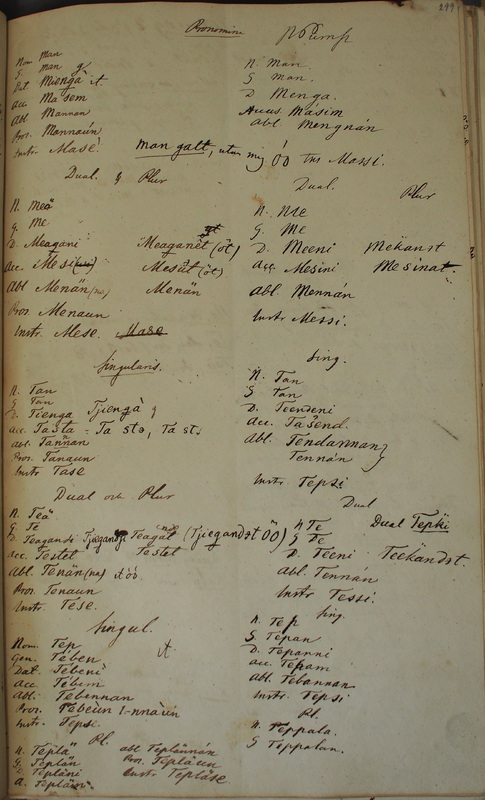 299
Pronomina
Nom Man
G. Man
Dat Mienga it.
Acc Ma sem
Abl Mannan
Pros. Mannaun
Instr Mase.
man galt, utan mig
Dual. & Plur
N. Meä
G. Me
D. Meagani Meaganet (öt)
Acc. Mesi Mesät (öt)
Abl Menän (na) Menän
Pros Menaun
Instr. Mese. Mase
Singularis.
N. Tan
G Tan
D. Tienga Tjienga
Acc. Tasta - Ta sta, Ta st.
Abl. Tannan
Pros. Tanaun
Instr Tase
Dual och Plur
N. Teä
G. Te
D. Teagandi Teagät (Tjiegandst ÖÖ)
Acc. Testet Testet
Abl. Tenän (na) it öö.
Pros. Tenaun
Instr. Tese.
Singul.
Nom. Tep it
Gen. Teben
Dat. Tebeni
Acc Tebem
Abl. Tebennan
Pros. Tebeun l-nnaun
Instr. Tepse.
Pl.
N. Teplä abl Teplännän
G. Teplän Pros. Tepläun
D. Tepläni Instr Tepläse
A.
N. Man.
G Man.
D. Menga.
Accus. Masim
Abl. Mengnán
Öö Ins Massi.
Dual. Plur
N. Me
G. Me
D. Meeni Mekanst
Acc. Mesini Mesinat.
Abl. Mennán
Instr Messi.
Sing.
N. Tan
G Tan
D. Teendeni
Acc. Tasend.
Abl. Tendannan
Tennán
Instr. Tepsi
Dual
N Te Dual Tepki
G Te
D. Teeni Teekandst.
Abl. Tennán
Instr. Tessi.
Sing.
N. Tep
G. Tepan
D. Tepanni
Acc. Tepam
Abl. Tebannan
Instr. Tepsi
Pl.
N. Teppala.
G Teppalan.